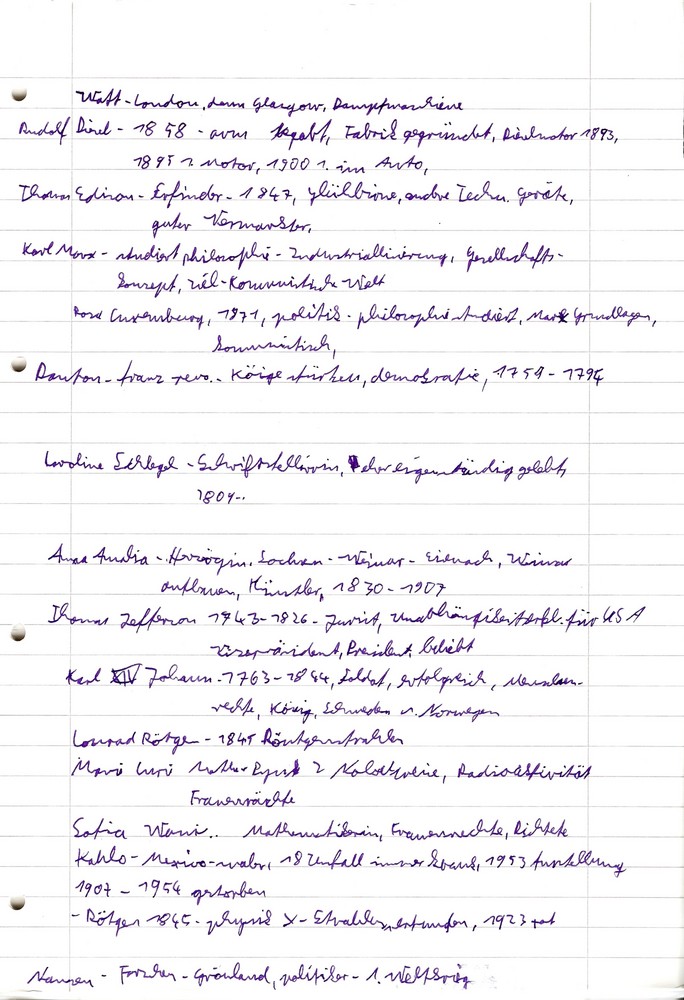 Watt - London, dann Glasgow, Dampfmaschiene
Rudolf Diesel - 1858 - arm gehabt, Fabrik gegründet, Dieselmotor 1893,
1895 1. Motor, 1900 1. im Auto,
Thomas Edison - Erfinder - 1847, glühbirne, andre Techn. Geräte,
guter Vermarkter,
Karl Marx - studiert philosophie - Industriallisierung, Gesellschafts-
konzept, ziel - Kommunistische Welt
Rosa Luxemburg, 1971, politik - philosophie studiert, Marx Grundlagen,
kommunistisch,
Danton - franz revo.. Köige stürken, demokratie, 1759 - 1794
Caroline Schlegel - Schriftstellerin, sehr eigenständig gelebt,
1809..
Anna Amalia - Herzögin, Sachsen - Weimar - Eisenach, Weimar
aufbauen, Künstler, 1830 - 1907
Thomas Jefferson 1743 - 1826 - Jurist, Unabhängikeitserkl. für USA
Vizepräsident, President, beliebt
Karl XIV Johann - 1763 - 1844, Soldat, erfolgreich, Menschen-
rechte, König, Schweden u. Norwegen
Conrad Rötgen - 1845 Röntgenstrahlen
Marie Curi 2 Radioaktivität
Frauenrächte
Sofia Mathematikerin, Frauenrechte, Dichtete
Kahlo - Mexico - maler, 18 Unfall immer krank, 1953 Austellung
1907 - 1954 gestorben
- Rötgen 1845 - physik X - Strahlen, erfunden, 1923 tot
Nansen - Forscher - Grönland, politiker - 1. Weltkrieg